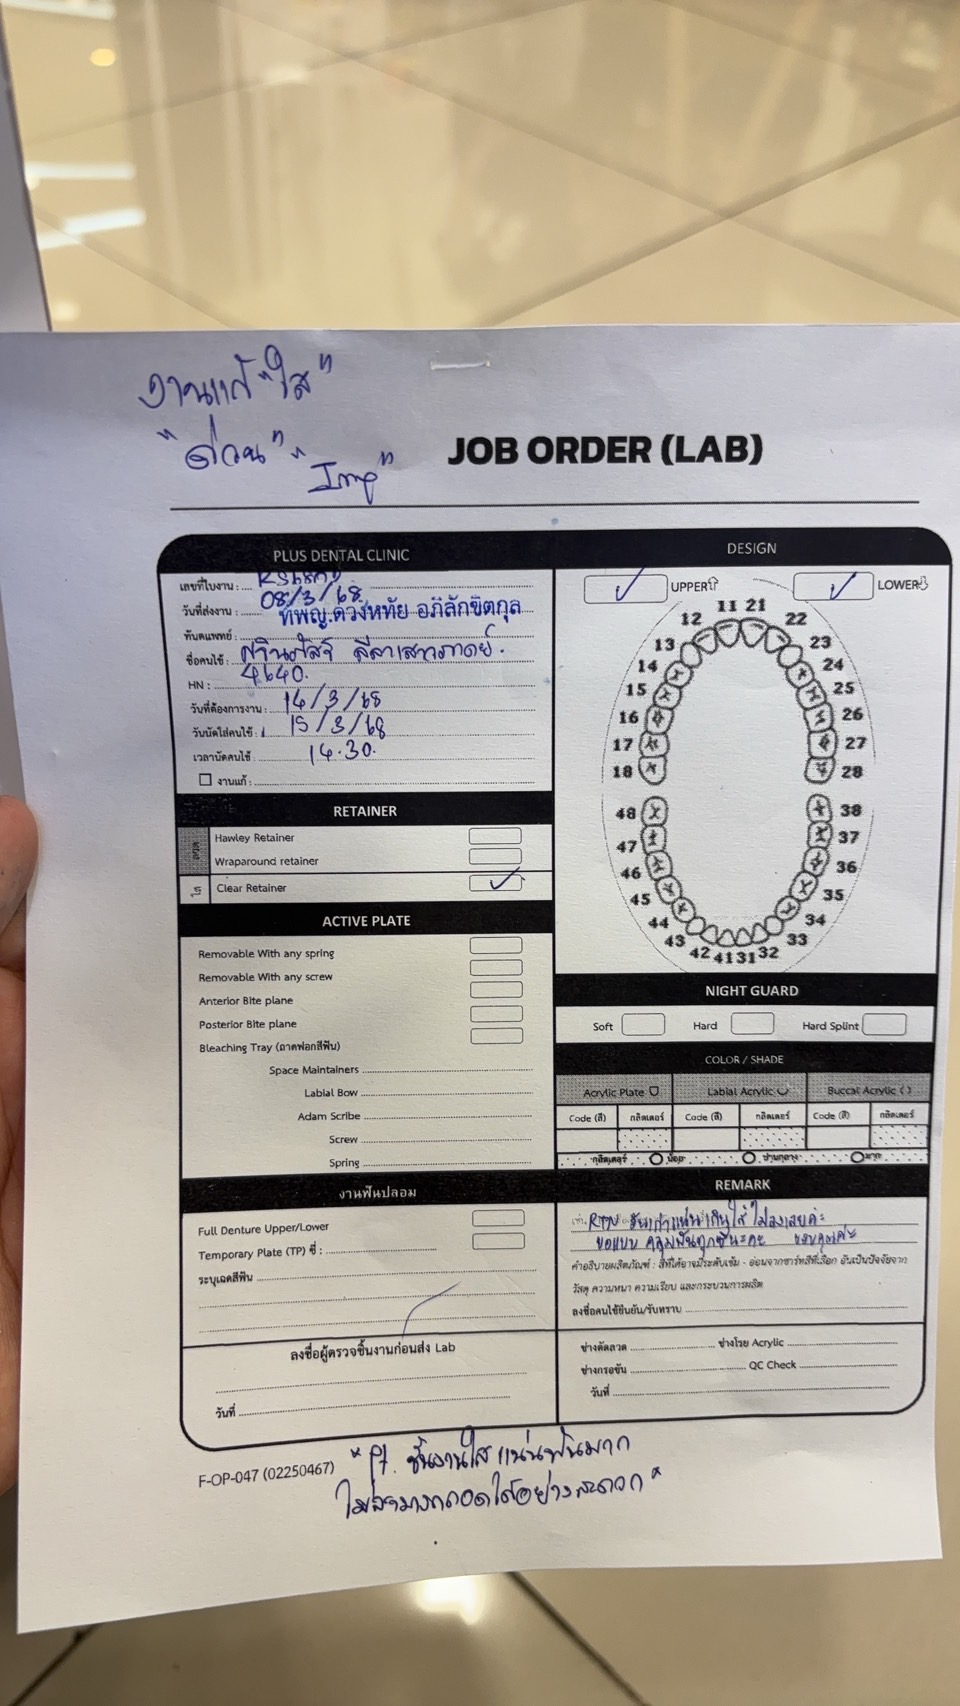 งานแก้ "ใส"
"ด่วน" "Imp"
JOB ORDER (LAB)
PLUS DENTAL CLINIC
เลขที่ใบงาน :
วันที่ส่งงาน : 08/3/68
ทันตแพทย์ : ทพญ.ดวงหทัย อภิลักขิตกุล
ชื่อคนไข้ :
HN : 4640.
วันที่ต้องการงาน : 14/3/68
วันนัดใส่คนไข้ : 15/3/68
เวลานัดคนไข้ : 14.30.
งานแก้ :
RETAINER
ลวด
Hawley Retainer
Wraparound retainer
ใส
Clear Retainer ✓
ACTIVE PLATE
Removable With any spring
Removable With any screw
Anterior Bite plane
Posterior Bite plane
Bleaching Tray (ถาดฟอกสีฟัน)
Space Maintainers
Labial Bow
Adam Scribe
Screw
Spring
งานฟันปลอม
Full Denture Upper/Lower
Temporary Plate (TP) ซี่ :
ระบุเฉดสีฟัน
ลงชื่อผู้ตรวจชิ้นงานก่อนส่ง Lab
วันที่
DESIGN
✓ UPPER ✓ LOWER
11 21
12 22
13 23
14 24
15 25
16 26
17 27
18 28
48 38
47 37
46 36
45 35
44 34
43 33
42 41 31 32
NIGHT GUARD
Soft Hard Hard Splint
COLOR / SHADE
Acrylic Plate Labial Acrylic Buccal Acrylic
Code (สี) กลิตเตอร์ Code (สี) กลิตเตอร์ Code (สี) กลิตเตอร์
กลิตเตอร์ น้อย ปานกลาง มาก
REMARK
RTN อันเก่าแน่นเกินไป ใส่ไม่ลงเลยค่ะ
ขอแบบ คลุมฟันทุกซี่นะคะ ขอบคุณค่ะ
คำอธิบายผลิตภัณฑ์ : สีที่ได้อาจมีระดับเข้ม - อ่อนจากชาร์ทสีที่เลือก อันเป็นปัจจัยจาก
วัสดุ ความหนา ความเรียบ และกระบวนการผลิต
ลงชื่อคนไข้ยืนยัน/รับทราบ
ช่างดัดลวด ช่างโรย Acrylic
ช่างกรอขัด QC Check
วันที่
F-OP-047 (02250467)
* pt. ชิ้นงานใส แน่นฟันมาก
ไม่สามารถถอดได้อย่างสะดวก *